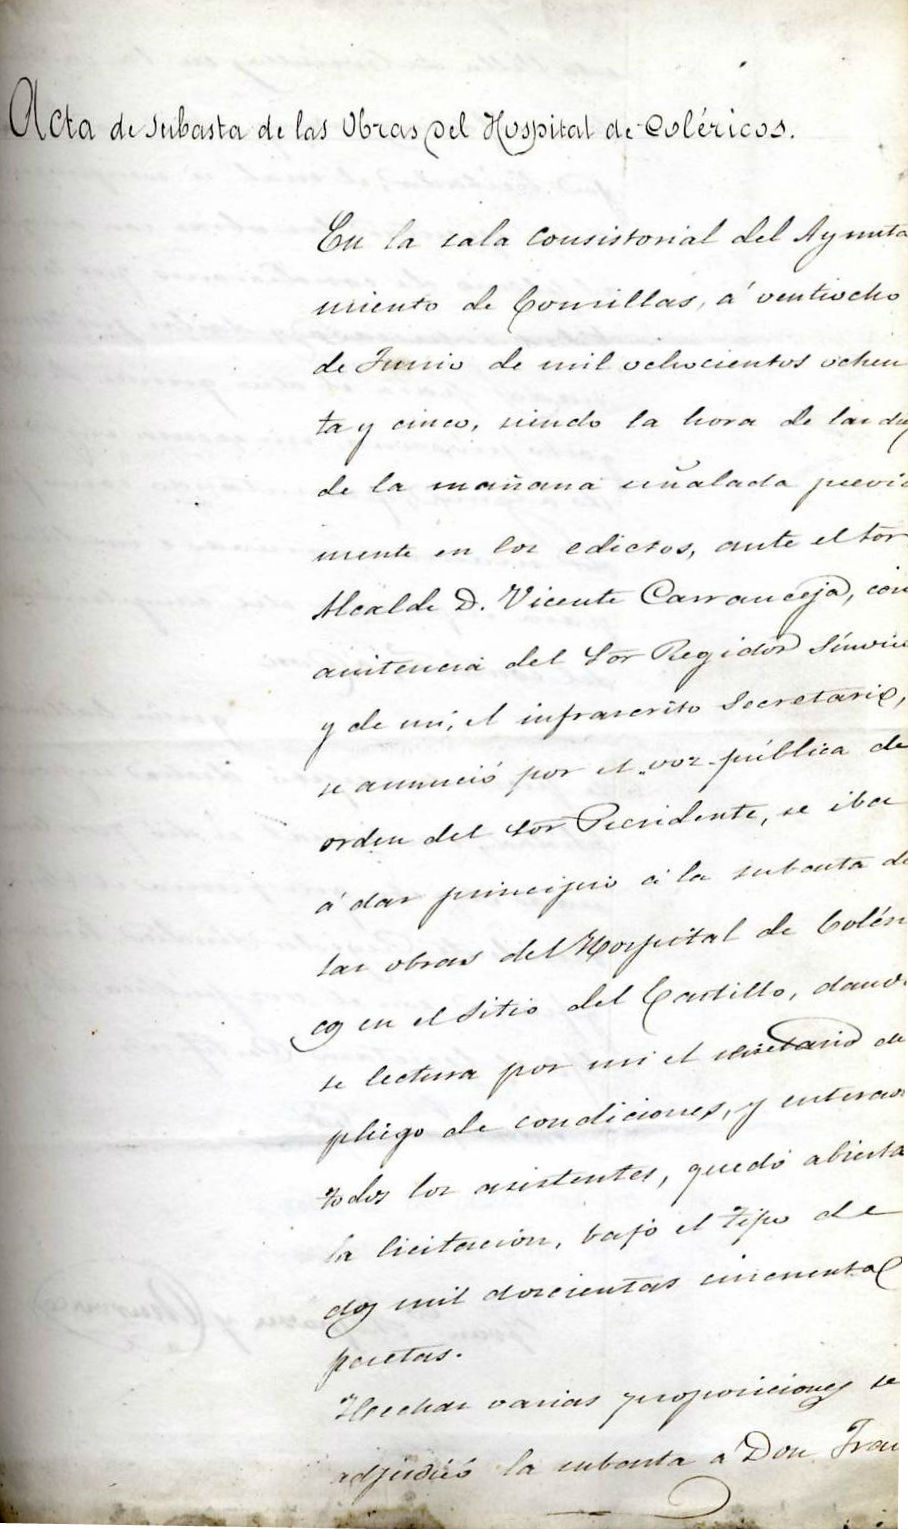 Acta de subasta de las Obras del Hospital de Coléricos.
En la sala Consistorial del Ayunta
miento de Comillas, á ventiocho
de Junio de mil ochocientos ochen
ta y cinco, siendo la hora de las
de la mañana señalada previa
mente en los edictos, ante el Sor
Alcalde D. Vicente Carranceja, con
asistencia del Sor Regidor Síndico
y de mi, el infrascrito Secretario,
se anunció por el voz pública de
orden del Sor Presidente, se iba
á dar principio á la subasta de
las obras del Hospital de Coléri
cos en el sitio del Castillo, dando
se lectura por mi el secretario del
pliego de condiciones, y enterados
todos los asistentes, quedó abierta
la licitación, bajo el tipo de
dos mil doscientas cincuenta
pesetas.
Hechas varias proposiciones se
adjudicó la subasta a Don Fran